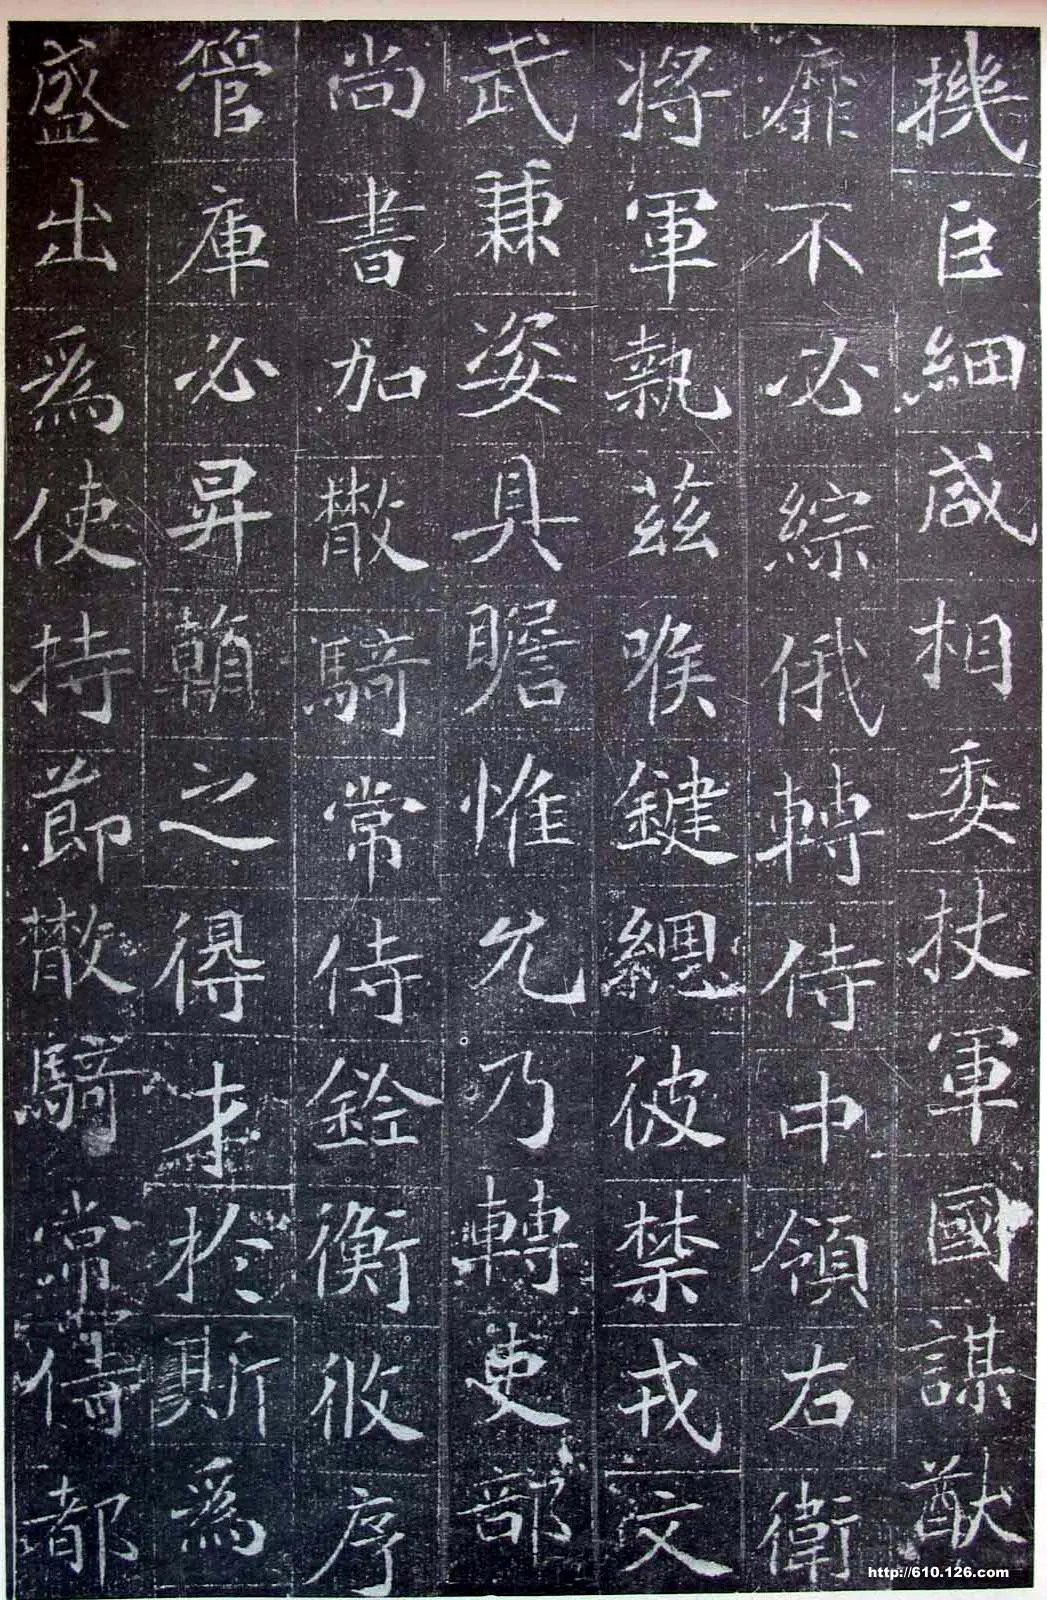 機巨細咸相委杖軍國謀猷
靡不必綜俄轉侍中領右衛
將軍執茲喉鍵總彼禁戎文
武兼姿具瞻惟允乃轉吏部
尚書加散騎常侍銓衡攸序
管庫必昇韻之得才於斯爲
盛出爲使持節散騎常侍都
http://610.126.com